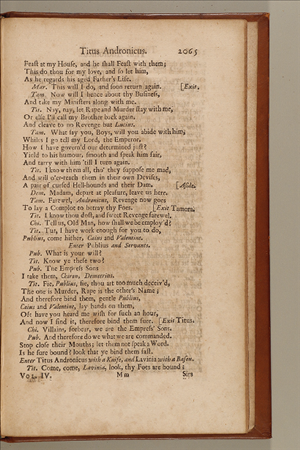 Titus Andronicus. 2065
Feast at my House, and he shall Feast with them;
This do thou for my love, and so let him,
As he regards his aged Father's Life.
Mar. This will I do, and soon return again. [Exit.
Tam. Now will I hence about thy Business,
And take my Ministers along with me.
Tit. Nay, nay, let Rape and Murder stay with me,
Or else I'll call my Brother back again,
And cleave to no Revenge but Lucius.
Tam. What say you, Boys, will you abide with him,
Whiles I go tell my Lord, the Emperor,
How I have govern'd our determined jest?
Yield to his humour, smooth and speak him fair,
And tarry with him 'till I turn again.
Tit. I know them all, tho' they suppose me mad,
And will o'er-reach them in their own Devises,
A pair of cursed Hell-hounds and their Dam. [Aside.
Dem. Madam, depart at pleasure, leave us here.
Tam. Farewel, Andronicus, Revenge now goes
To lay a Complot to betray thy Foes. Exit Tamora.
Tit. I know thou dost, and sweet Revenge farewel.
Chi. Tell us, Old Man, how shall we be employ'd?
Tit. Tut, I have work enough for you to do,
Publius, come hither, Caius and Valentine.
Enter Publius and Servants.
Pub. What is your will?
Tit. Know ye these two?
Pub. The Empress' Sons
I take them, Chiron, Demetrius.
Tit. Fie, Publius, fie, thou art too much deceiv'd,
The one is Murder, Rape is the other's Name;
And therefore bind them, gentle Publius,
Caius and Valentine, lay hands on them,
Oft have you heard me wish for such an hour,
And now I find it, therefore bind them sure. [Exit Titus.
Chi. Villains, forbear, we are the Empress' Sons.
Pub. And therefore do we what we are commanded.
Stop close their Mouths; let them not speak a Word.
Is he sure bound? look that ye bind them fast.
Enter Titus Andronicus with a Knife, and Lavinia with a Bason.
Tit. Come, come, Lavinia, look, thy Foes are bound;
VOL. IV. Mm Sirs